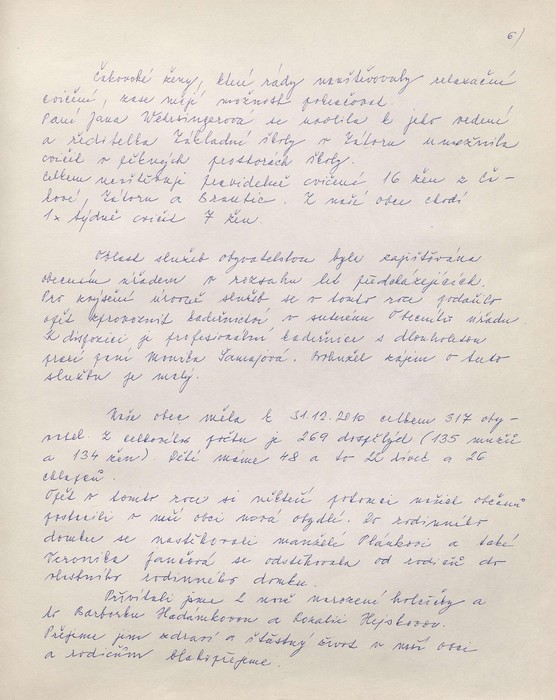 6)
Čakovské ženy, které rády navštěvovaly relaxační
cvičení, zase mají možnost pokračovat.
Paní Jana se uvolila k jeho vedení
a ředitelka Základní školy v Zátoru umožnila
cvičit v pěkných prostorách školy.
Celkem navštěvuje pravidelně cvičení 16 žen z Ča-
kové, Zátoru a Brantic. Z naší obce chodí
1x týdně cvičit 7 žen.
Oblast služeb obyvatelstvu byla zajišťována
obecním úřadem v rozsahu let předcházejících.
Pro zvýšení úrovně služeb se v tomto roce podařilo
opět zprovoznit kadeřnictví v suterénu Obecního úřadu
K dispozici je profesionální kadeřnice s dlouholetou
praxí paní Monika. Bohužel zájem o tuto
službu je malý.
Naše obec měla k 31.12.2010 celkem 317 oby-
vatel. Z celkového počtu je 269 dospělých (135 mužů
a 134 žen). Dětí máme 48 a to 22 dívek a 26
chlapců.
Opět v tomto roce si někteří potomci našich občanů
postavili v naší obci nová obydlí. Do rodinného
domku se nastěhovali manželé Plačkovi a také
Veronika Jančová se odstěhovala od rodičů do
vlastního rodinného domku.
Přivítali jsme 2 nově narozené holčičky a
to Barborku Hadámkovou a Rozálii Hejskovou.
Přejeme jim zdraví a šťastný život v naší obci
a rodičům blahopřejeme.